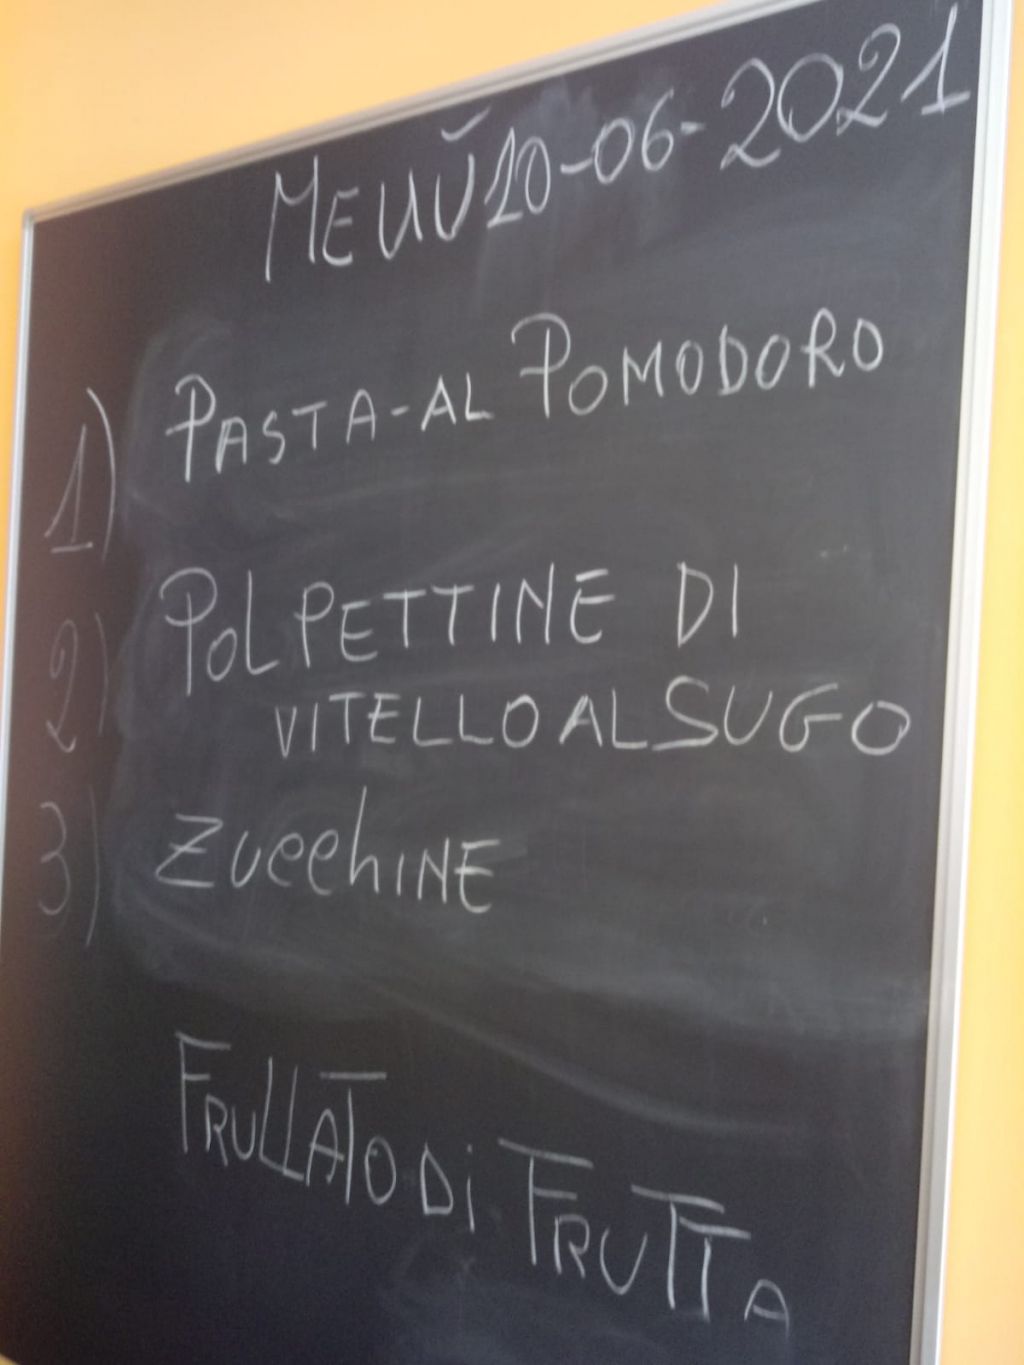 MENÙ 10-06-2021
1) PASTA-AL POMODORO
2) POLPETTINE DI
VITELLO AL SUGO
3) ZUCCHINE
FRULLATO Di FRUTTA